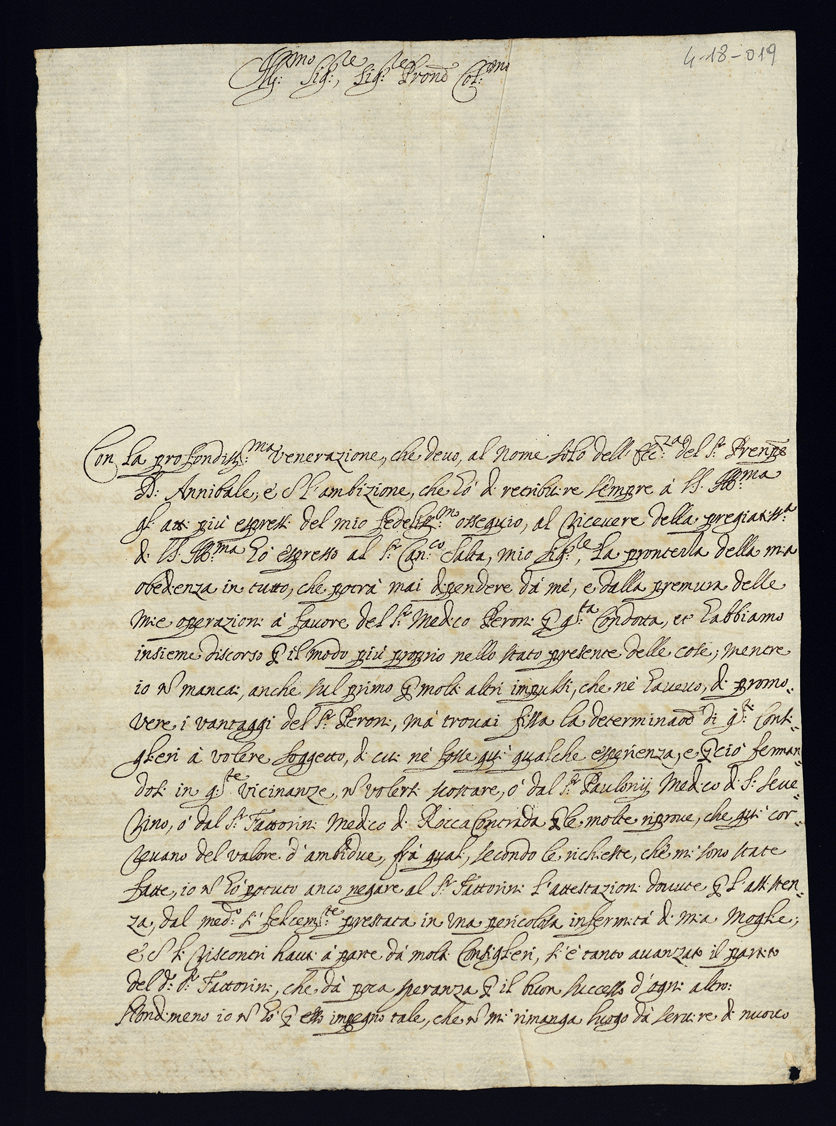 4-18-019
Ill:mo Sig:re, Sig:re Pron̄e Col:mo
Con la profondiss:ma venerazione, che devo, al Nome solo dell' Ecc:za del S:r Prenpe
D: Annibale, e cō l'ambizione, che hò di retribuire sempre à VS: Ill:ma
gl' atti più espressi del mio fedeliss:mo ossequio, al ricevere della pregiatiss:a
di VS: Ill:ma hò espresso al S:r Can:co Salta, mio Sig:re, la prontezza della mia
obedienza in tutto, che potrà mai dipendere dà mè, e dalla premura delle
mie operazioni à favore del S:r Medico Peroni p̱ q:ta Condotta, et habbiamo
insieme discorso p̱ il modo più proprio nello stato presente delle cose; mentre
io nō mancai, anche sul primo p̱ molti altri impulsi, che nè havevo, di promo=
vere i vantaggi del S:r Peroni, mà trovai fissa la determinaōe di q:ti Consi=
glieri à volere soggetto, di cui nè fosse qui qualche esperienza, e p̱ciò ferman=
dosi in q:ste vicinanze, nō volersi scostare, ò dal S:r Paulonij Medico di S: Seve=
rino, ò dal S:r Fattorini Medico di Rocca Contrada p̱ le molte riprove, che qui cor=
revano del valore d'ambidue, frà quali, secondo le richieste, che mi sono state
fatte, io nō hò potuto anco negare al S:r Fattorini l'attestazioni dovute p̱ l'assisten=
za, dal med:o sì felicem:te prestata in una pericolosa infermità di mia Moglie;
e cō li riscontri havuti à parte dà molti Consiglieri, si è tanto avanzato il partito
del d:o S:r Fattorini, che dà poca speranza p̱ il buon successo d'ogni altro:
Nondimeno io nō hò p̱ esso impegno tale, che nō mi rimanga luogo dà servire di nuovo